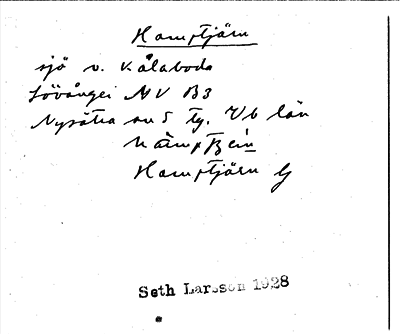 Hamptjärn
sjö v. Kålaboda
Lövånger NV B3
Nysätra av S tg. Vb län
Hamptjärn G
Seth Larsson 1928